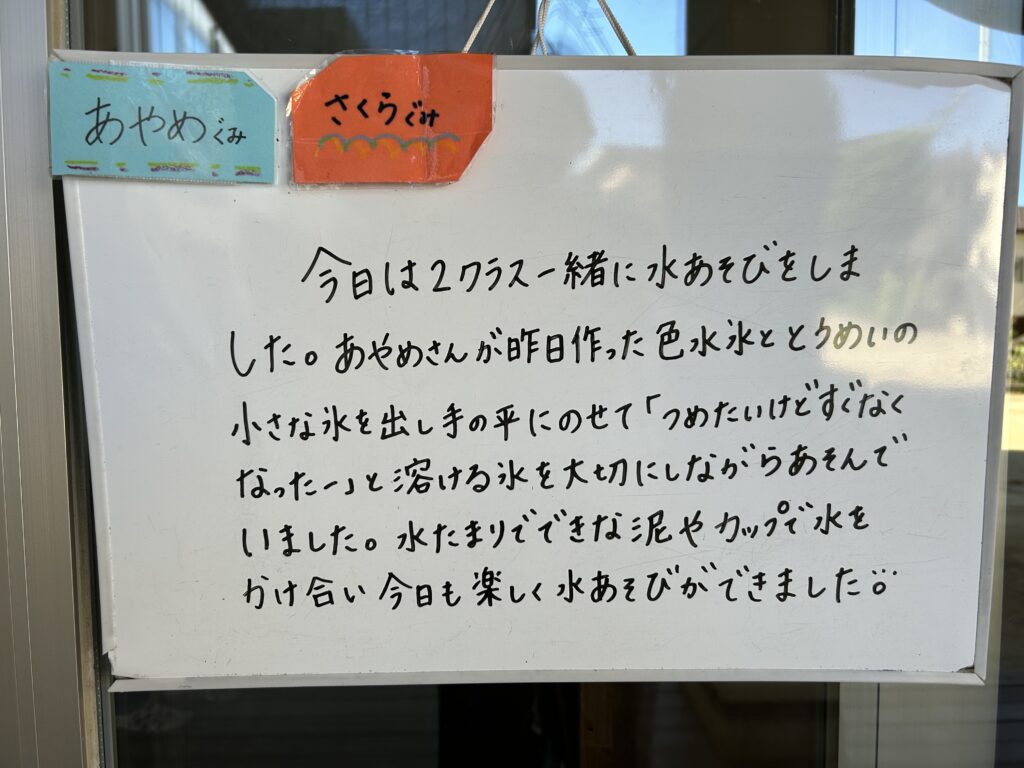 あやめぐみ
さくらぐみ
今日は2クラス一緒に水あそびをしま
した。あやめさんが昨日作った色水氷ととうめいの
小さな氷を出し手の平にのせて「つめたいけどすぐなく
なったー」と溶ける氷を大切にしながらあそんで
いました。水たまりでできな泥やカップで水を
かけ合い今日も楽しく水あそびができました。